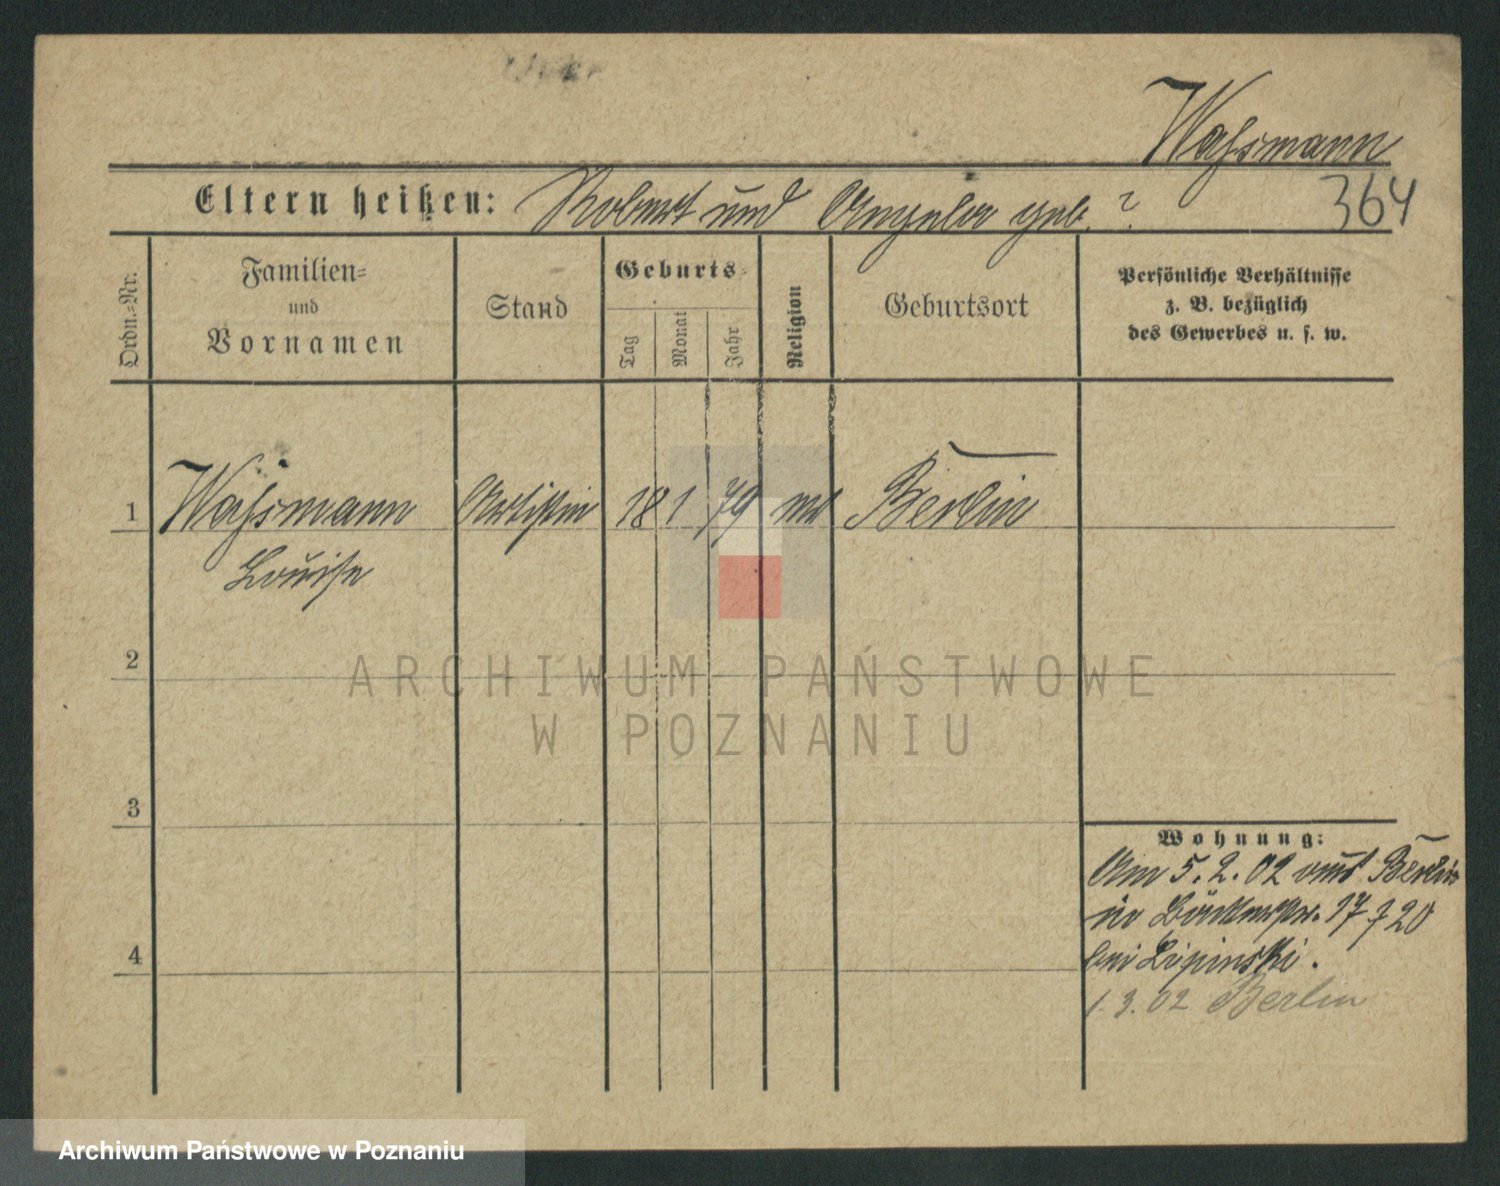 Waßmann
Eltern heißen: Robert und Angela geb. ?
364
Ordn.-Nr.
Familien-
und
Vornamen
Stand
Geburts-
Tag
Monat
Jahr
Religion
Geburtsort
Persönliche Verhältnisse
z. B. bezüglich
des Gewerbes u. s. w.
1 Waßmann Artistin 18 1 79 Berlin
Louise
2
ARCHIWUM PAŃSTWOWE
W POZNANIU
3
Wohnung:
Am 5.2.02 Berlin
in 17 f 20
bei Lipinski.
4
1.3.02 Berlin
Archiwum Państwowe w Poznaniu